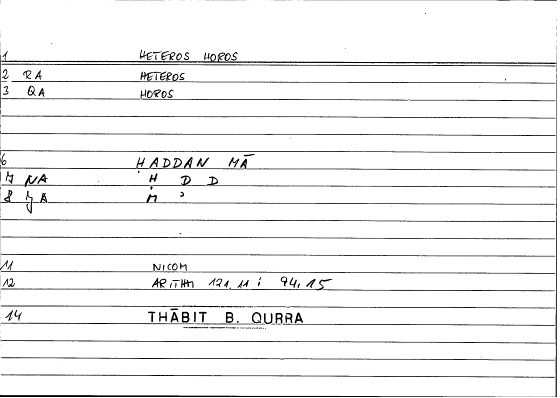 1 HETEROS HOROS
2 RA HETEROS
3 QA HOROS
6 HADDAN MĀ
7 NA H D D
8 M
11 NICOM
12 ARITHM 121,11 : 94,15
14 THĀBIT B. QURRA